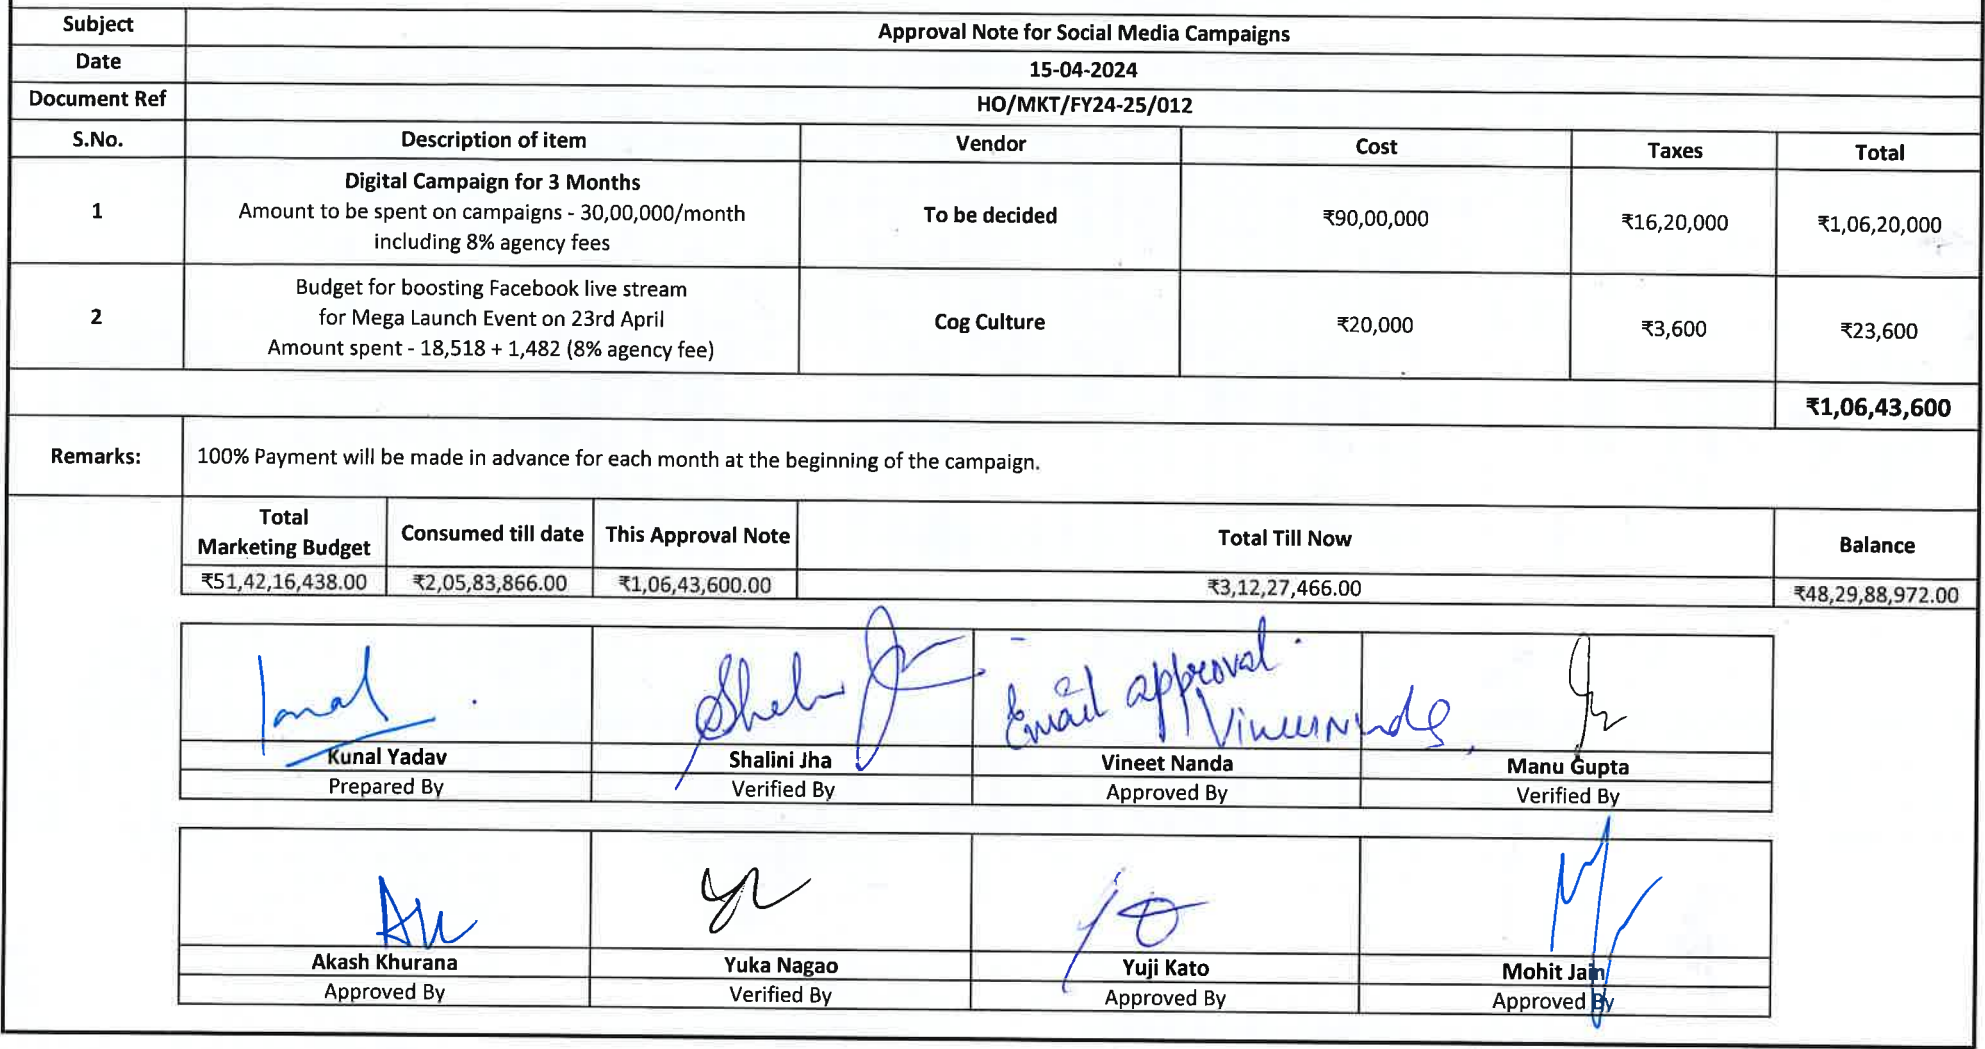 Subject Approval Note for Social Media Campaigns
Date 15-04-2024
Document Ref HO/MKT/FY24-25/012
S.No. Description of item Vendor Cost Taxes Total
1 Digital Campaign for 3 Months
Amount to be spent on campaigns - 30,00,000/month
including 8% agency fees
To be decided ₹90,00,000 ₹16,20,000 ₹1,06,20,000
2 Budget for boosting Facebook live stream
for Mega Launch Event on 23rd April
Amount spent - 18,518 + 1,482 (8% agency fee)
Cog Culture ₹20,000 ₹3,600 ₹23,600
₹1,06,43,600
Remarks: 100% Payment will be made in advance for each month at the beginning of the campaign.
Total
Marketing Budget Consumed till date This Approval Note Total Till Now Balance
₹51,42,16,438.00 ₹2,05,83,866.00 ₹1,06,43,600.00 ₹3,12,27,466.00 ₹48,29,88,972.00
Email approval
Kunal Yadav Shalini Jha Vineet Nanda Manu Gupta
Prepared By Verified By Approved By Verified By
Akash Khurana Yuka Nagao Yuji Kato Mohit Jain
Approved By Verified By Approved By Approved By